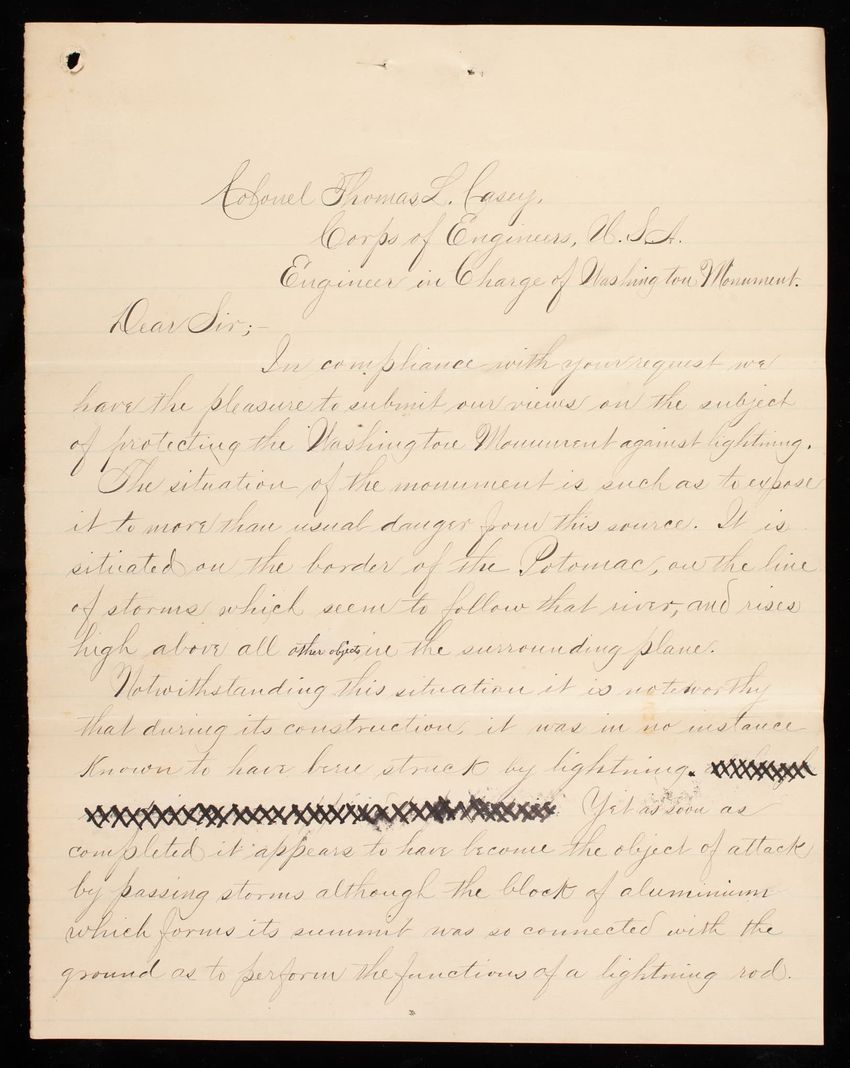 Colonel Thomas L. Casey,
Corps of Engineers, U.S.A.
Engineer in Charge of Washington Monument.
Dear Sir;-
In compliance with your request we
have the pleasure to submit our views on the subject
of protecting the Washington Monument against lightning.
The situation of the monument is such as to expose
it to more than usual danger from this source. It is
situated on the border of the Potomac, on the line
of storms which seem to follow that river, and rises
high above all other objects in the surrounding plane.
Notwithstanding this situation it is noteworthy
that during its construction, it was in no instance
known to have been struck by lightning.
Yet as soon as
completed it appears to have become the object of attack
by passing storms although the block of aluminium
which forms its summit was so connected with the
ground as to perform the functions of a lightning rod.